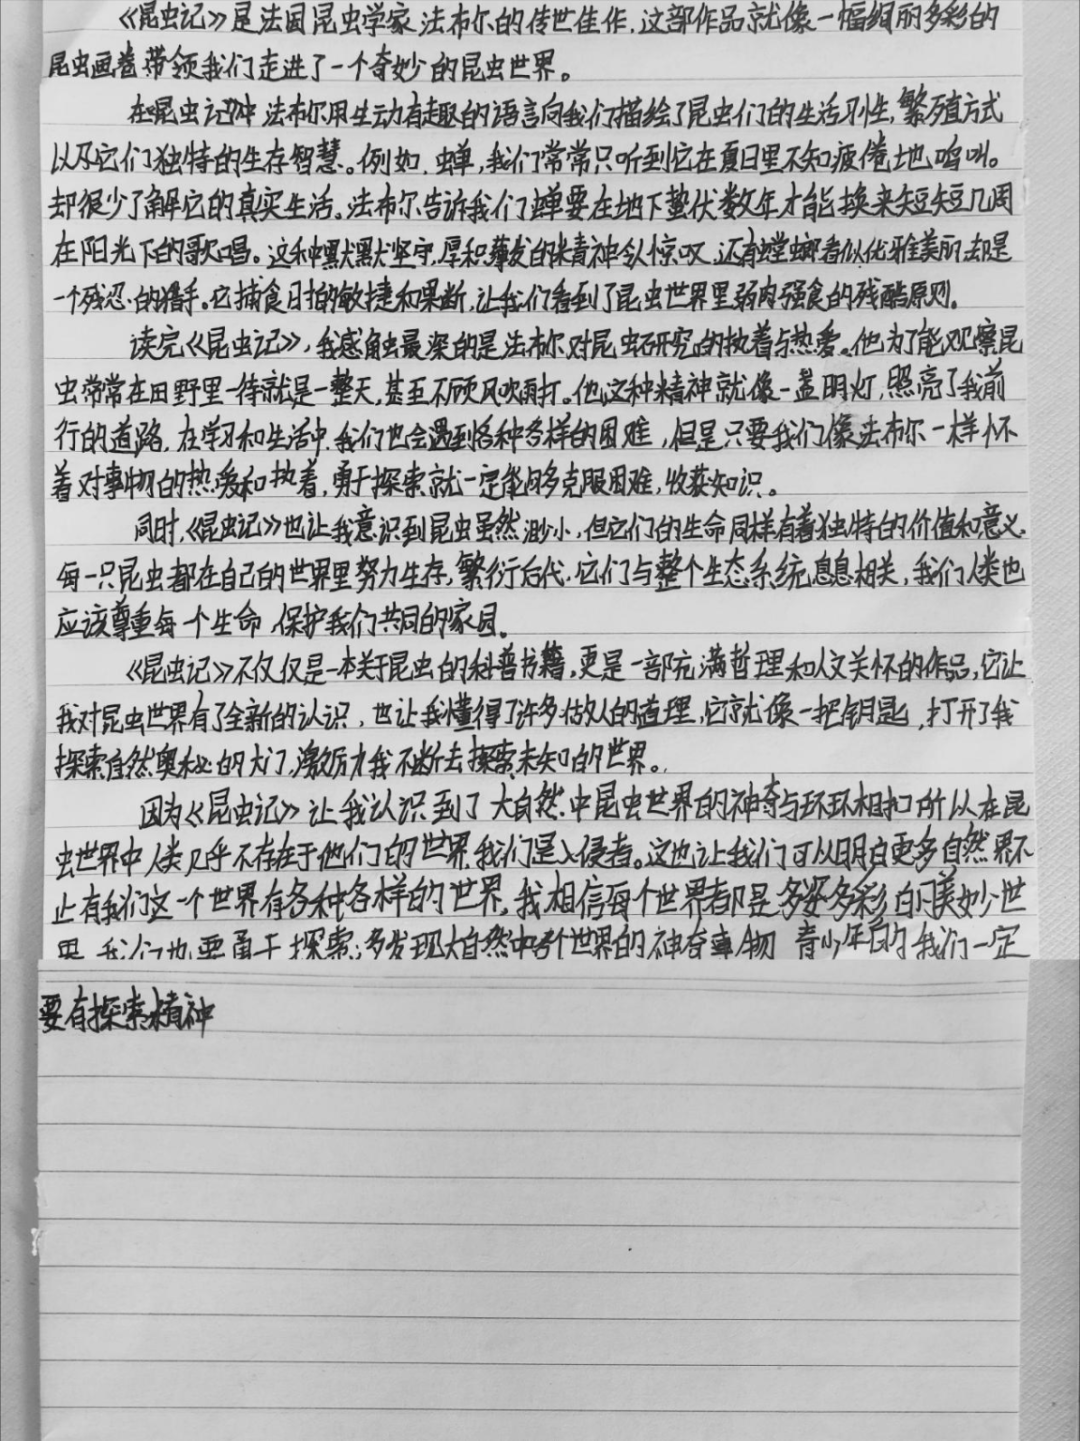 《昆虫记》是法国昆虫学家法布尔的传世佳作,这部作品就像一幅绚丽多彩的
昆虫画卷带领我们走进了一个奇妙的昆虫世界。
在《昆虫记》中法布尔用生动有趣的语言向我们描绘了昆虫们的生活习性,繁殖方式
以及它们独特的生存智慧。例如,蝉,我们常常只听到它在夏日里不知疲倦地鸣叫。
却很少了解它的真实生活。法布尔告诉我们蝉要在地下蛰伏数年才能换来短短几周
在阳光下的歌唱。这种默默坚守,厚积薄发的精神令人惊叹,还有螳螂看似优雅美丽却是
一个残忍的猎手。它捕食时的敏捷和果断,让我们看到了昆虫世界里弱肉强食的残酷原则。
读完《昆虫记》,我感触最深的是法布尔对昆虫研究的执着与热爱。他为了能观察昆
虫常常在田野里一待就是一整天,甚至不顾风吹雨打。他这种精神就像一盏明灯,照亮了我前
行的道路,在学习和生活中,我们也会遇到各种各样的困难,但是只要我们像法布尔一样怀
着对事物的热爱和执着,勇于探索就一定能够多克服困难,收获知识。
同时,《昆虫记》也让我意识到昆虫虽然渺小,但它们的生命同样有着独特的价值和意义.
每一只昆虫都在自己的世界里努力生存,繁衍后代,它们与整个生态系统息息相关,我们人类也
应该尊重每一个生命,保护我们共同的家园。
《昆虫记》不仅仅是一本关于昆虫的科普书籍,更是一部充满哲理和人文关怀的作品,它让
我对昆虫世界有了全新的认识,也让我懂得了许多做人的道理,它就像一把钥匙,打开了我
探索自然奥秘的大门,激励我不断去探索未知的世界。
因为《昆虫记》让我认识到了大自然中昆虫世界的神奇与环环相扣所以在昆
虫世界中人类几乎不存在于他们的世界我们是入侵者。这也让我们可以明白更多自然界不
止有我们这一个世界有各种各样的世界,我相信每个世界都是多姿多彩的美妙世
界,我们也要勇于探索;多发现大自然中各个世界的神奇事物 青少年的我们一定
要有探索精神